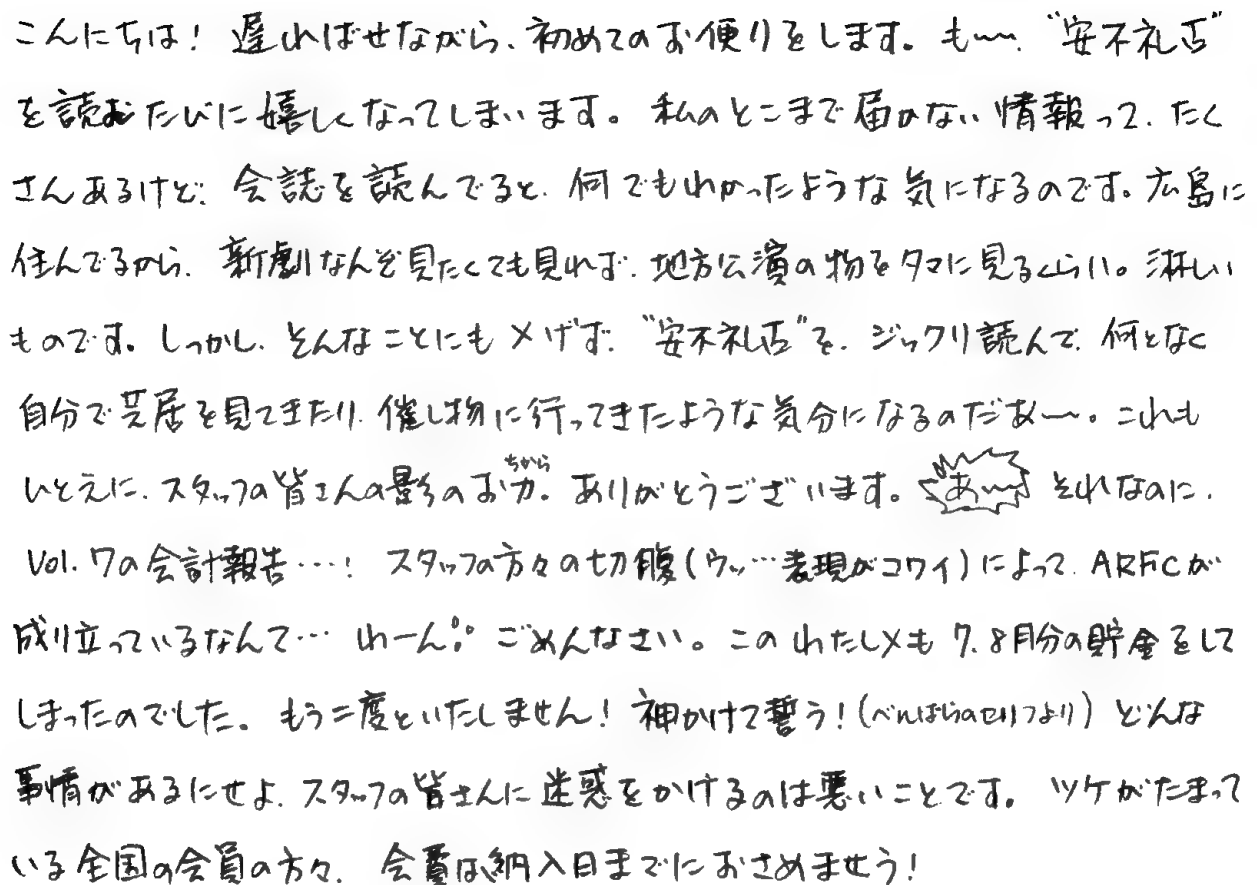 こんにちは！ 遅ればせながら、初めてのお便りをします。も〜〜、“安不礼店”
を読むたびに嬉しくなってしまいます。私のとこまで届かない情報って、たく
さんあるけど、会誌を読んでると、何でもわかったような気になるのです。広島に
住んでるから、新劇なんぞ見たくても見れず、地方公演の物をタマに見るくらい。淋しい
ものです。しっかし、そんなことにもメげず、“安不礼店”を、ジックリ読んで、何となく
自分で芝居を見てきたり、催し物に行ってきたような気分になるのだなぁ〜。これも
ひとえに、スタッフの皆さんの影のお力。ありがとうございます。あ〜〜 それなのに、
ちから
Vol.7の会計報告…！ スタッフの方々の切腹(ウッ…表現がコワイ)によって、ARFCが
成り立っているなんて… わーん。ごめんなさい。このわたしメも 7、8月分の貯金をして
しまったのでした。もう二度といたしません！神かけて誓う！(べんばらのセリフより) どんな
事情があるにせよ、スタッフの皆さんに迷惑をかけるのは悪いことです。ツケがたまって
いる全国の会員の方々、会費は納入日までにおさめませう！